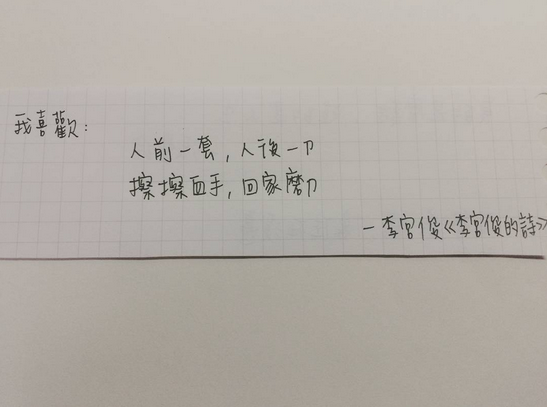 我喜歡：
人前一套，人後一刀
擦擦血手，回家磨刀
—李宮俊《李宮俊的詩》